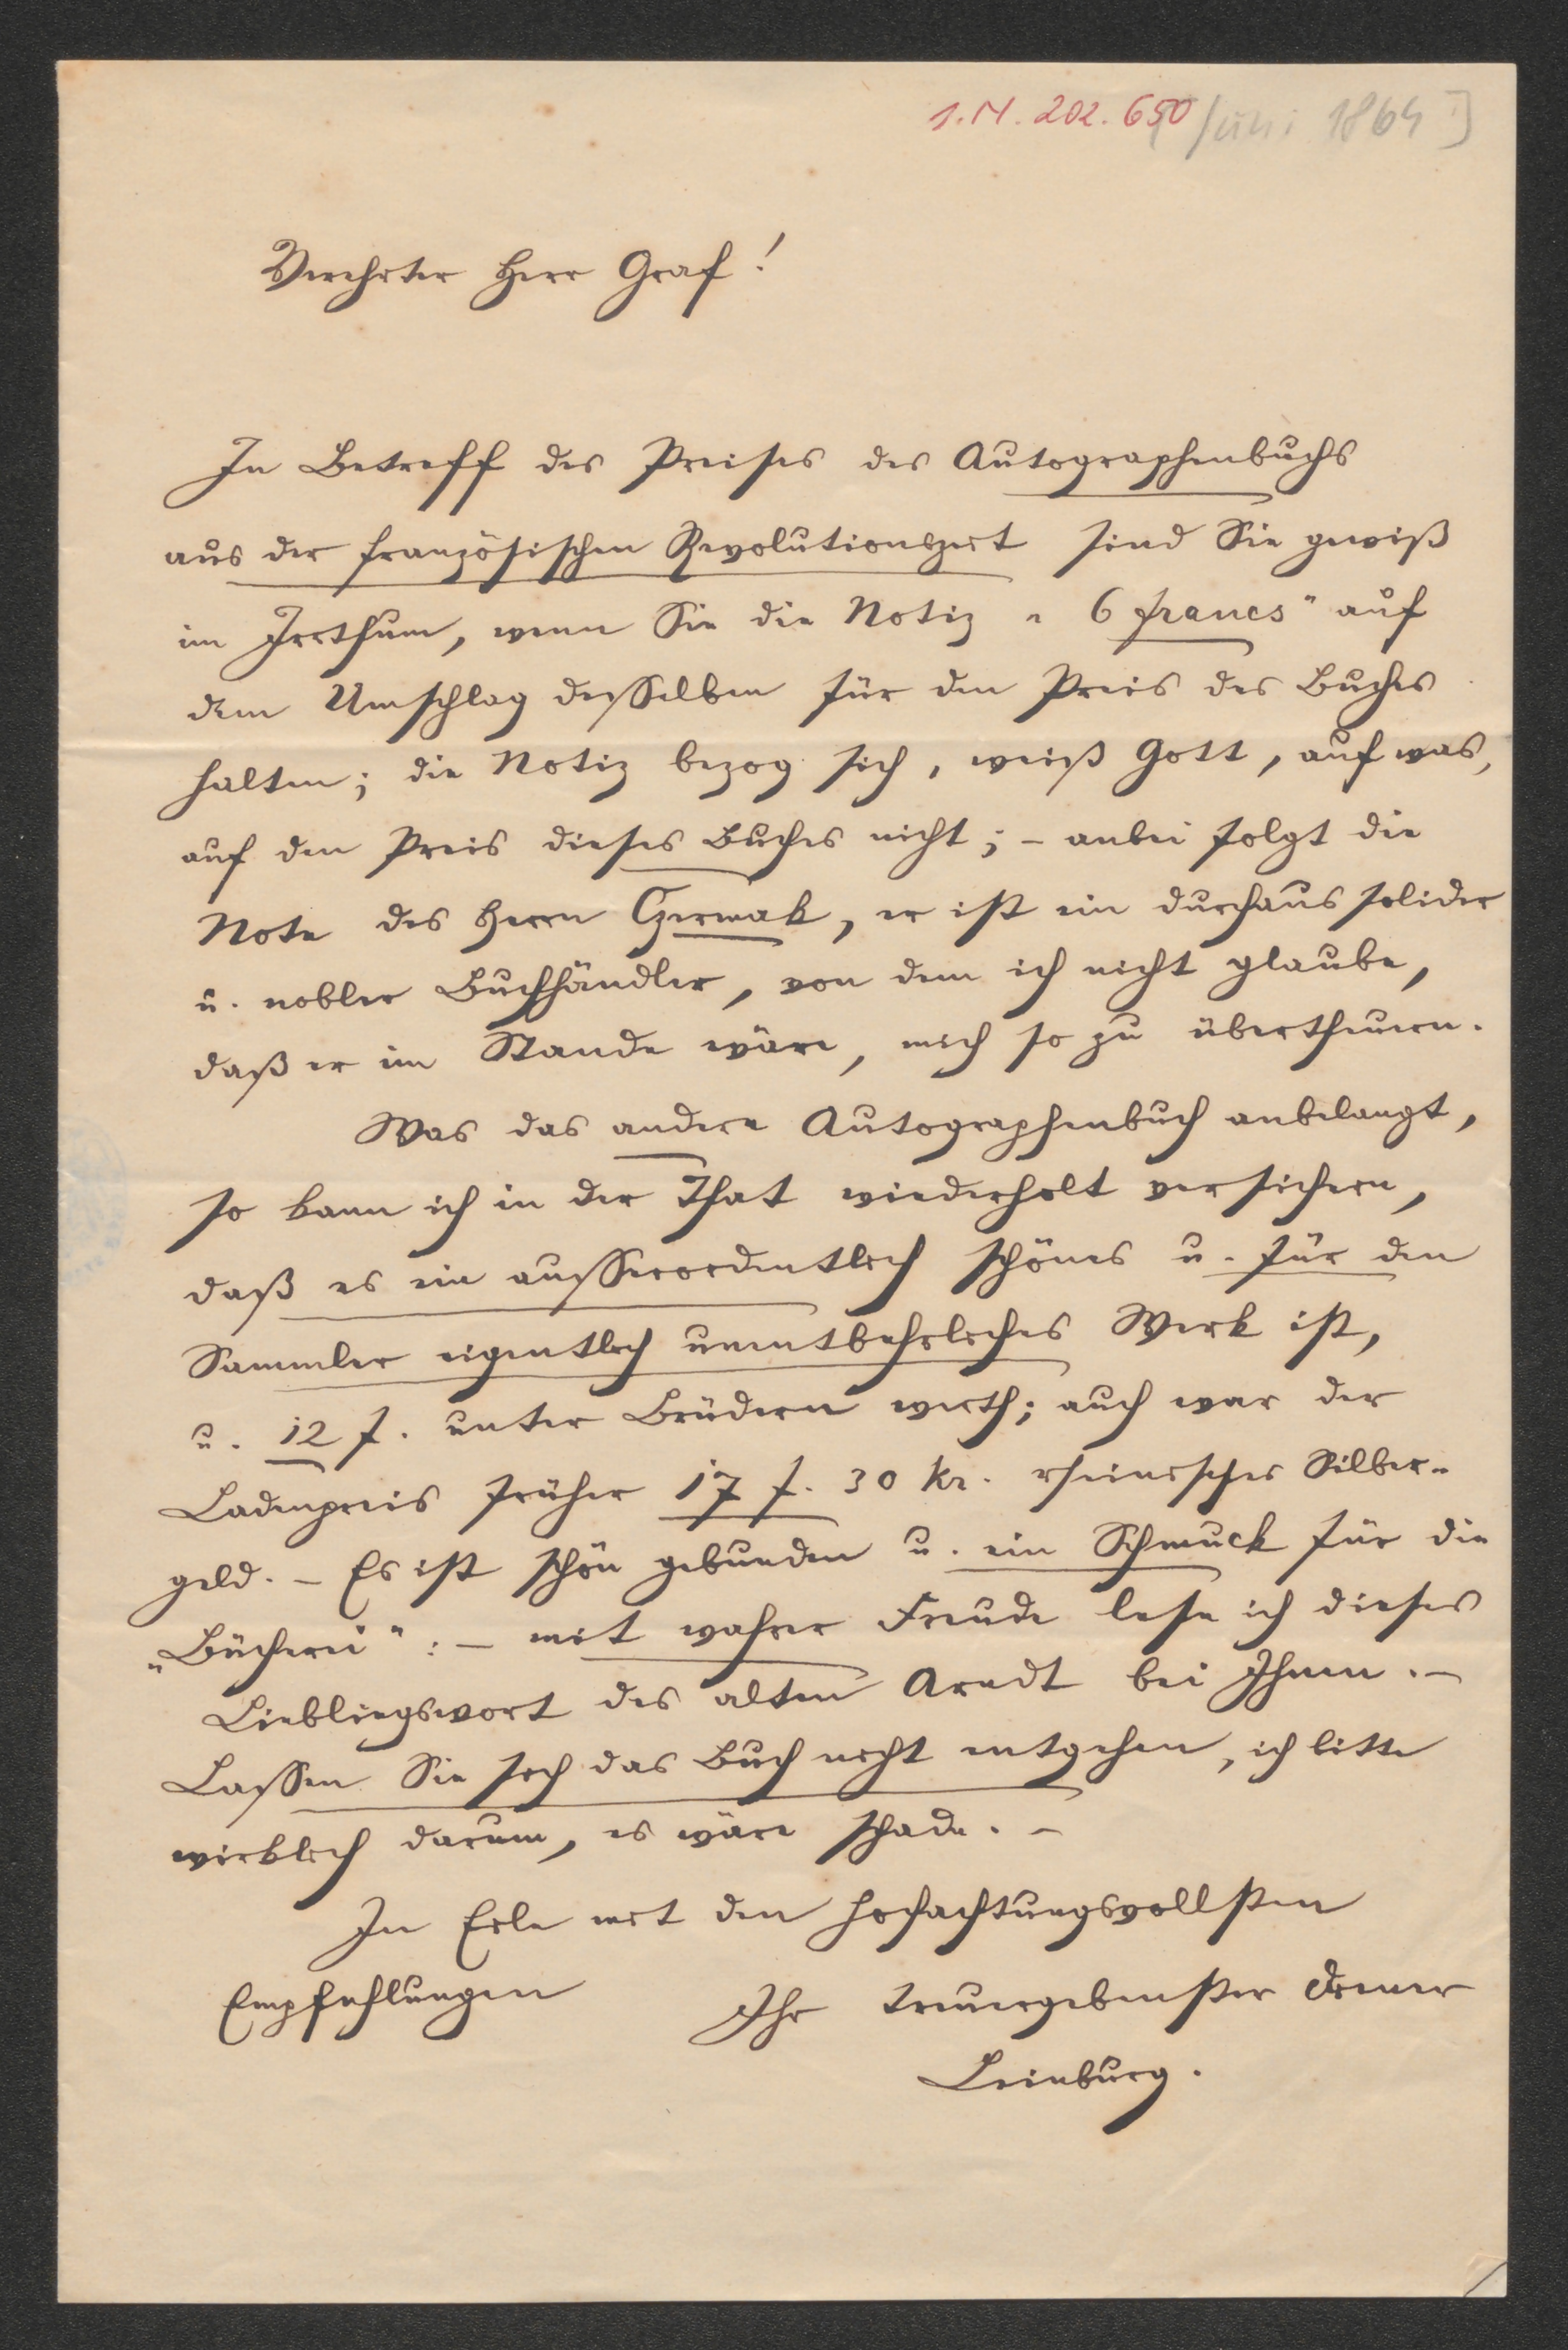 1.N. 202.650 [Juni 1864]
Verehrter Herr Graf!
In Betreff des Preises des Autographenbuchs
aus der französischen Revolutionszeit sind Sie gewiß
im Irrthum, wenn Sie die Notiz „ 6 francs" auf
dem Umschlag desselben für den Preis des Buches
halten; die Notiz bezog sich, weiß Gott, auf was,
auf den Preis dieses Buches nicht; – anbei folgt die
Note des Herrn Czermak, er ist ein durchaus solider
u. nobler Buchhändler, von dem ich nicht glaube,
daß er im Stande wäre, mich so zu übertheuern.
Was das andere Autographenbuch anbelangt,
so kann ich in der That wiederholt versichern,
daß es ein ausserordentlich schönes u. für den
Sammler eigentlich unentbehrliches Werk ist,
u. 12 f. unter Brüdern werth; auch war der
Ladenpreis früher 17 f. 30 kr. rheinisches Silber-
geld. – Es ist schön gebunden u. ein Schmuck für die
„Bücherei": – mit wahrer Freude lese ich dieses
Lieblingswort des alten Arndt bei Ihnen. –
Lassen Sie sich das Buch nicht entgehen, ich bitte
wirklich darum, es wäre schade. –
In Eile mit den hochachtungsvollsten
Empfehlungen Ihr treuergebenster Diener
Leinburg.